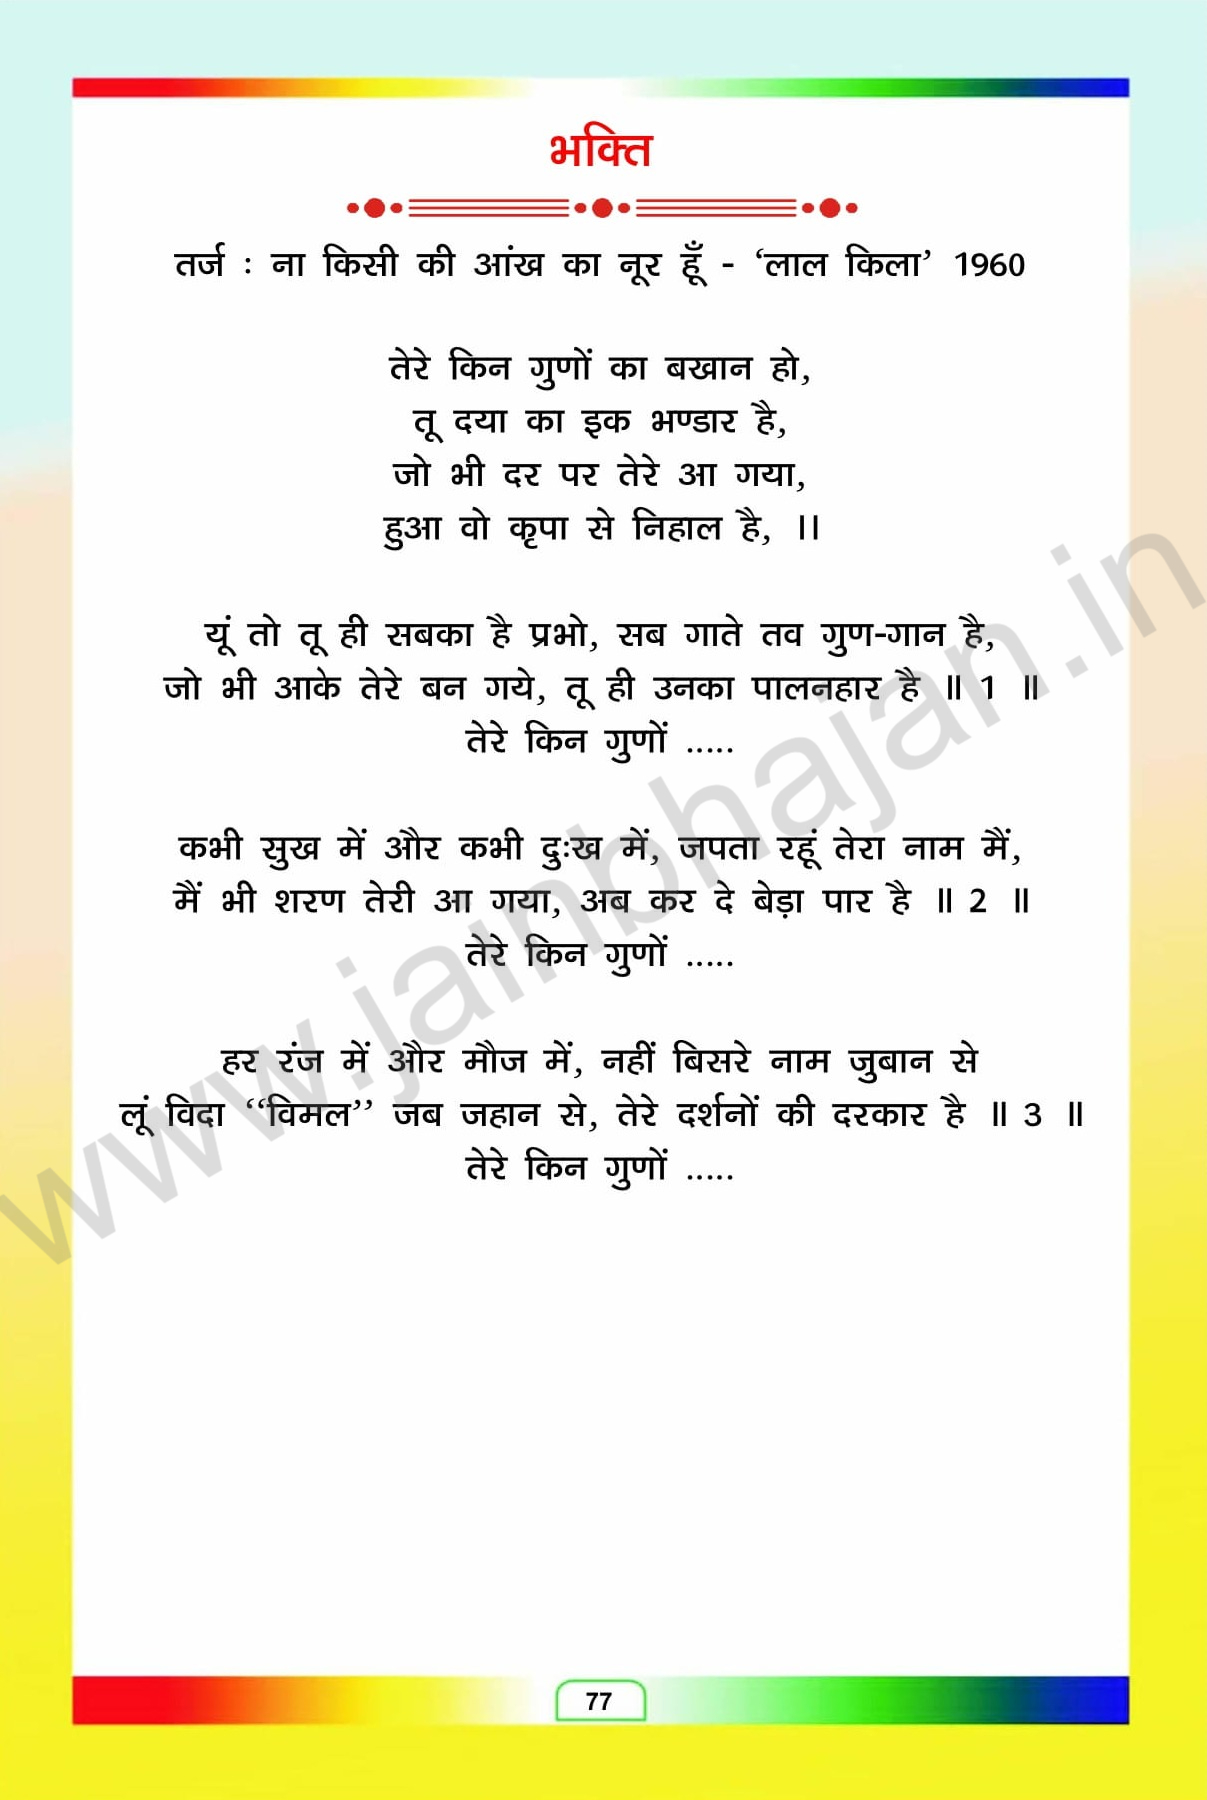 भक्ति
तर्ज : ना किसी की आंख का नूर हूँ - ‘लाल किला’ 1960
तेरे किन गुणों का बखान हो,
तू दया का इक भण्डार है,
जो भी दर पर तेरे आ गया,
हुआ वो कृपा से निहाल है, ।।
यूं तो तू ही सबका है प्रभो, सब गाते तव गुण-गान है,
जो भी आके तेरे बन गये, तू ही उनका पालनहार है ॥ 1 ॥
तेरे किन गुणों .....
कभी सुख में और कभी दुःख में, जपता रहूं तेरा नाम मैं,
मैं भी शरण तेरी आ गया, अब कर दे बेड़ा पार है ॥ 2 ॥
तेरे किन गुणों .....
हर रंज में और मौज में, नहीं बिसरे नाम जुबान से
लूं विदा ‘‘विमल’’ जब जहान से, तेरे दर्शनों की दरकार है ॥ 3 ॥
तेरे किन गुणों .....
www.jainbhajan.in
77